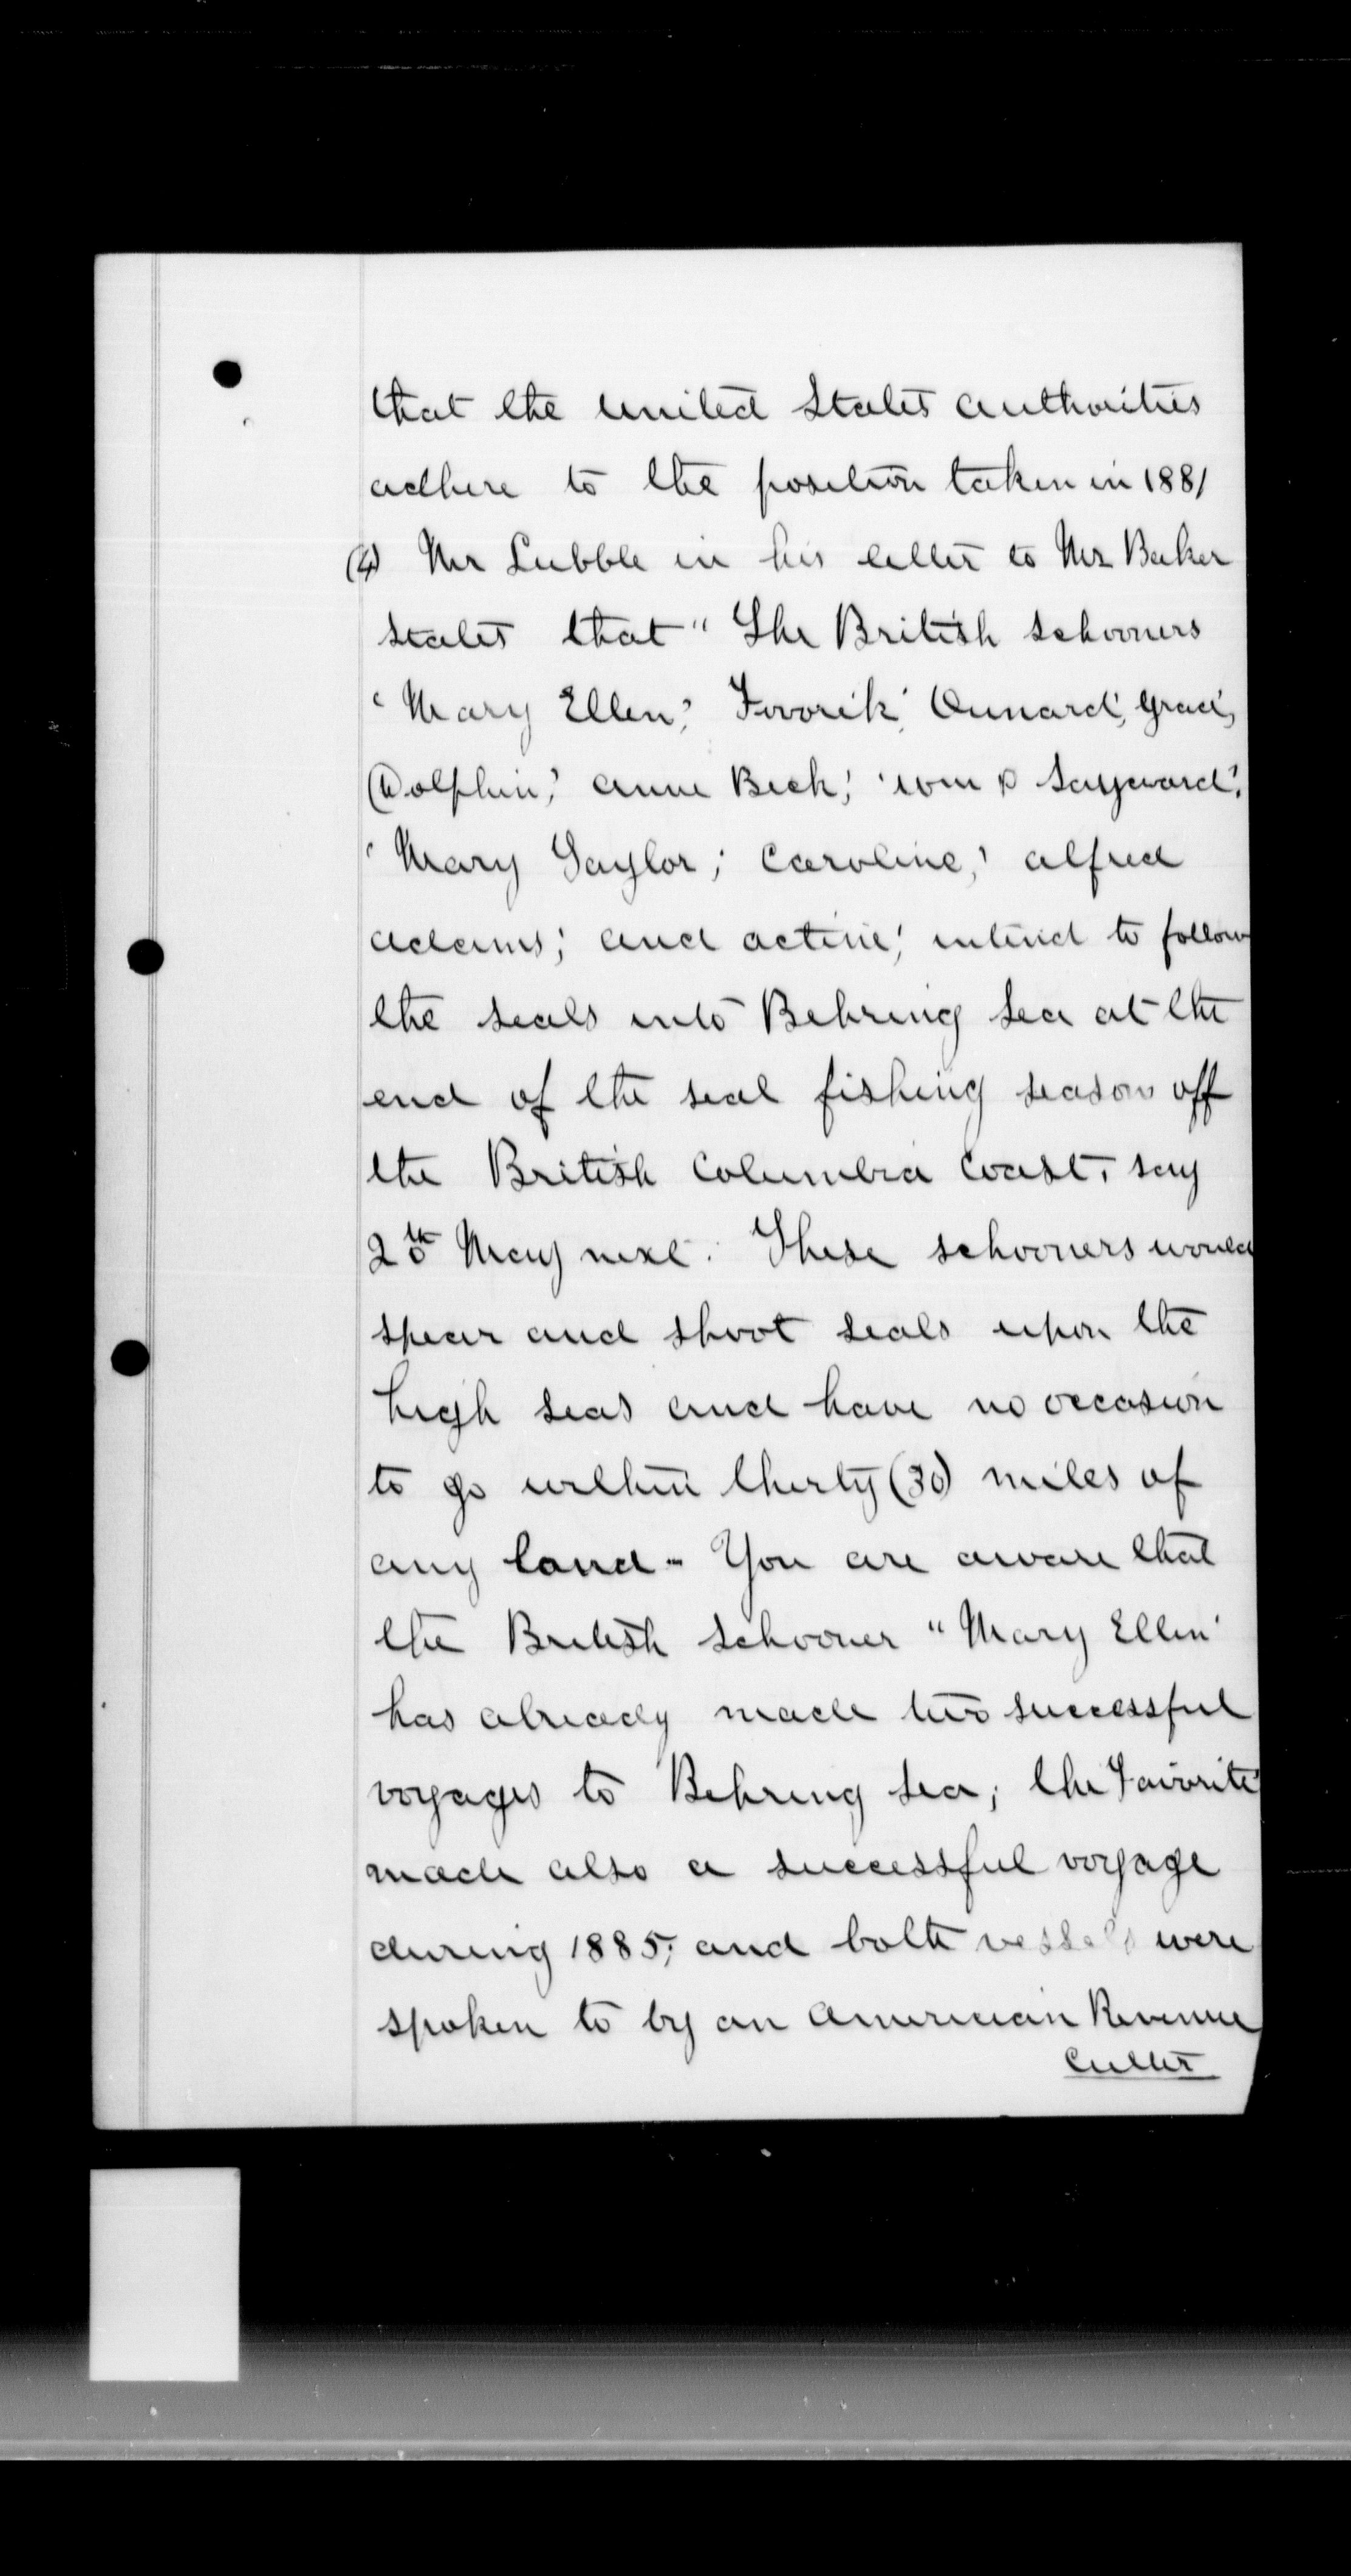 that the United States authorities
adhere to the position taken in 1881
(4) Mr Lubble in his letter to Mr Baker
states that "The British schooners
'Mary Ellen,' Favorik,' Onward,' Grace,'
Dolphin,' Anne Beck,' 'Wm P Sayward,'
'Mary Taylor,' Caroline,' Alfred
Adams,' and Active,' intend to follow
the seals into Behring Sea at the
end of the seal fishing season off
the British Columbia Coast, say
20th May next. These schooners would
spear and shoot seals upon the
high seas and have no occasion
to go within thirty (30) miles of
any land - You are aware that
the British Schooner "Mary Ellen'
has already made two successful
voyages to Behring Sea; the Favorite'
made also a successful voyage
during 1885; and both vessels were
spoken to by an American Revenue
Cutter